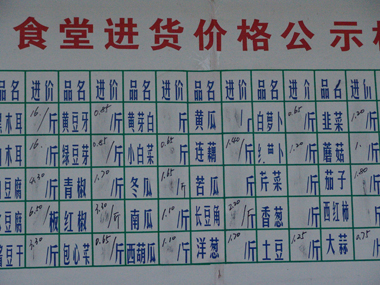 食堂进货价格公示
品名 进价 品名 进价 品名 进价 品名 进价 品名 进价 品名 进价
木耳 16./斤 黄豆芽 0.85/斤 黄芽白 /斤 黄瓜 /斤 白萝卜 0.65/斤 韭菜 1.20/
木耳 16./斤 绿豆芽 /斤 小白菜 0.65/斤 连藕 1.40/斤 萝卜 /斤 蘑菇 /
豆腐 4.30/斤 青椒 1.20/斤 冬瓜 1.65/斤 苦瓜 /斤 芹菜 /斤 茄子 1.80/
豆腐 6.50/板 红椒 /斤 南瓜 1.10/斤 长豆角 2.20/斤 香葱 /斤 西红柿 /
豆干 3.30/斤 包心菜 0.65/斤 西葫瓜 1.10/斤 洋葱 1.70/斤 土豆 1.25/斤 大蒜 0.75/